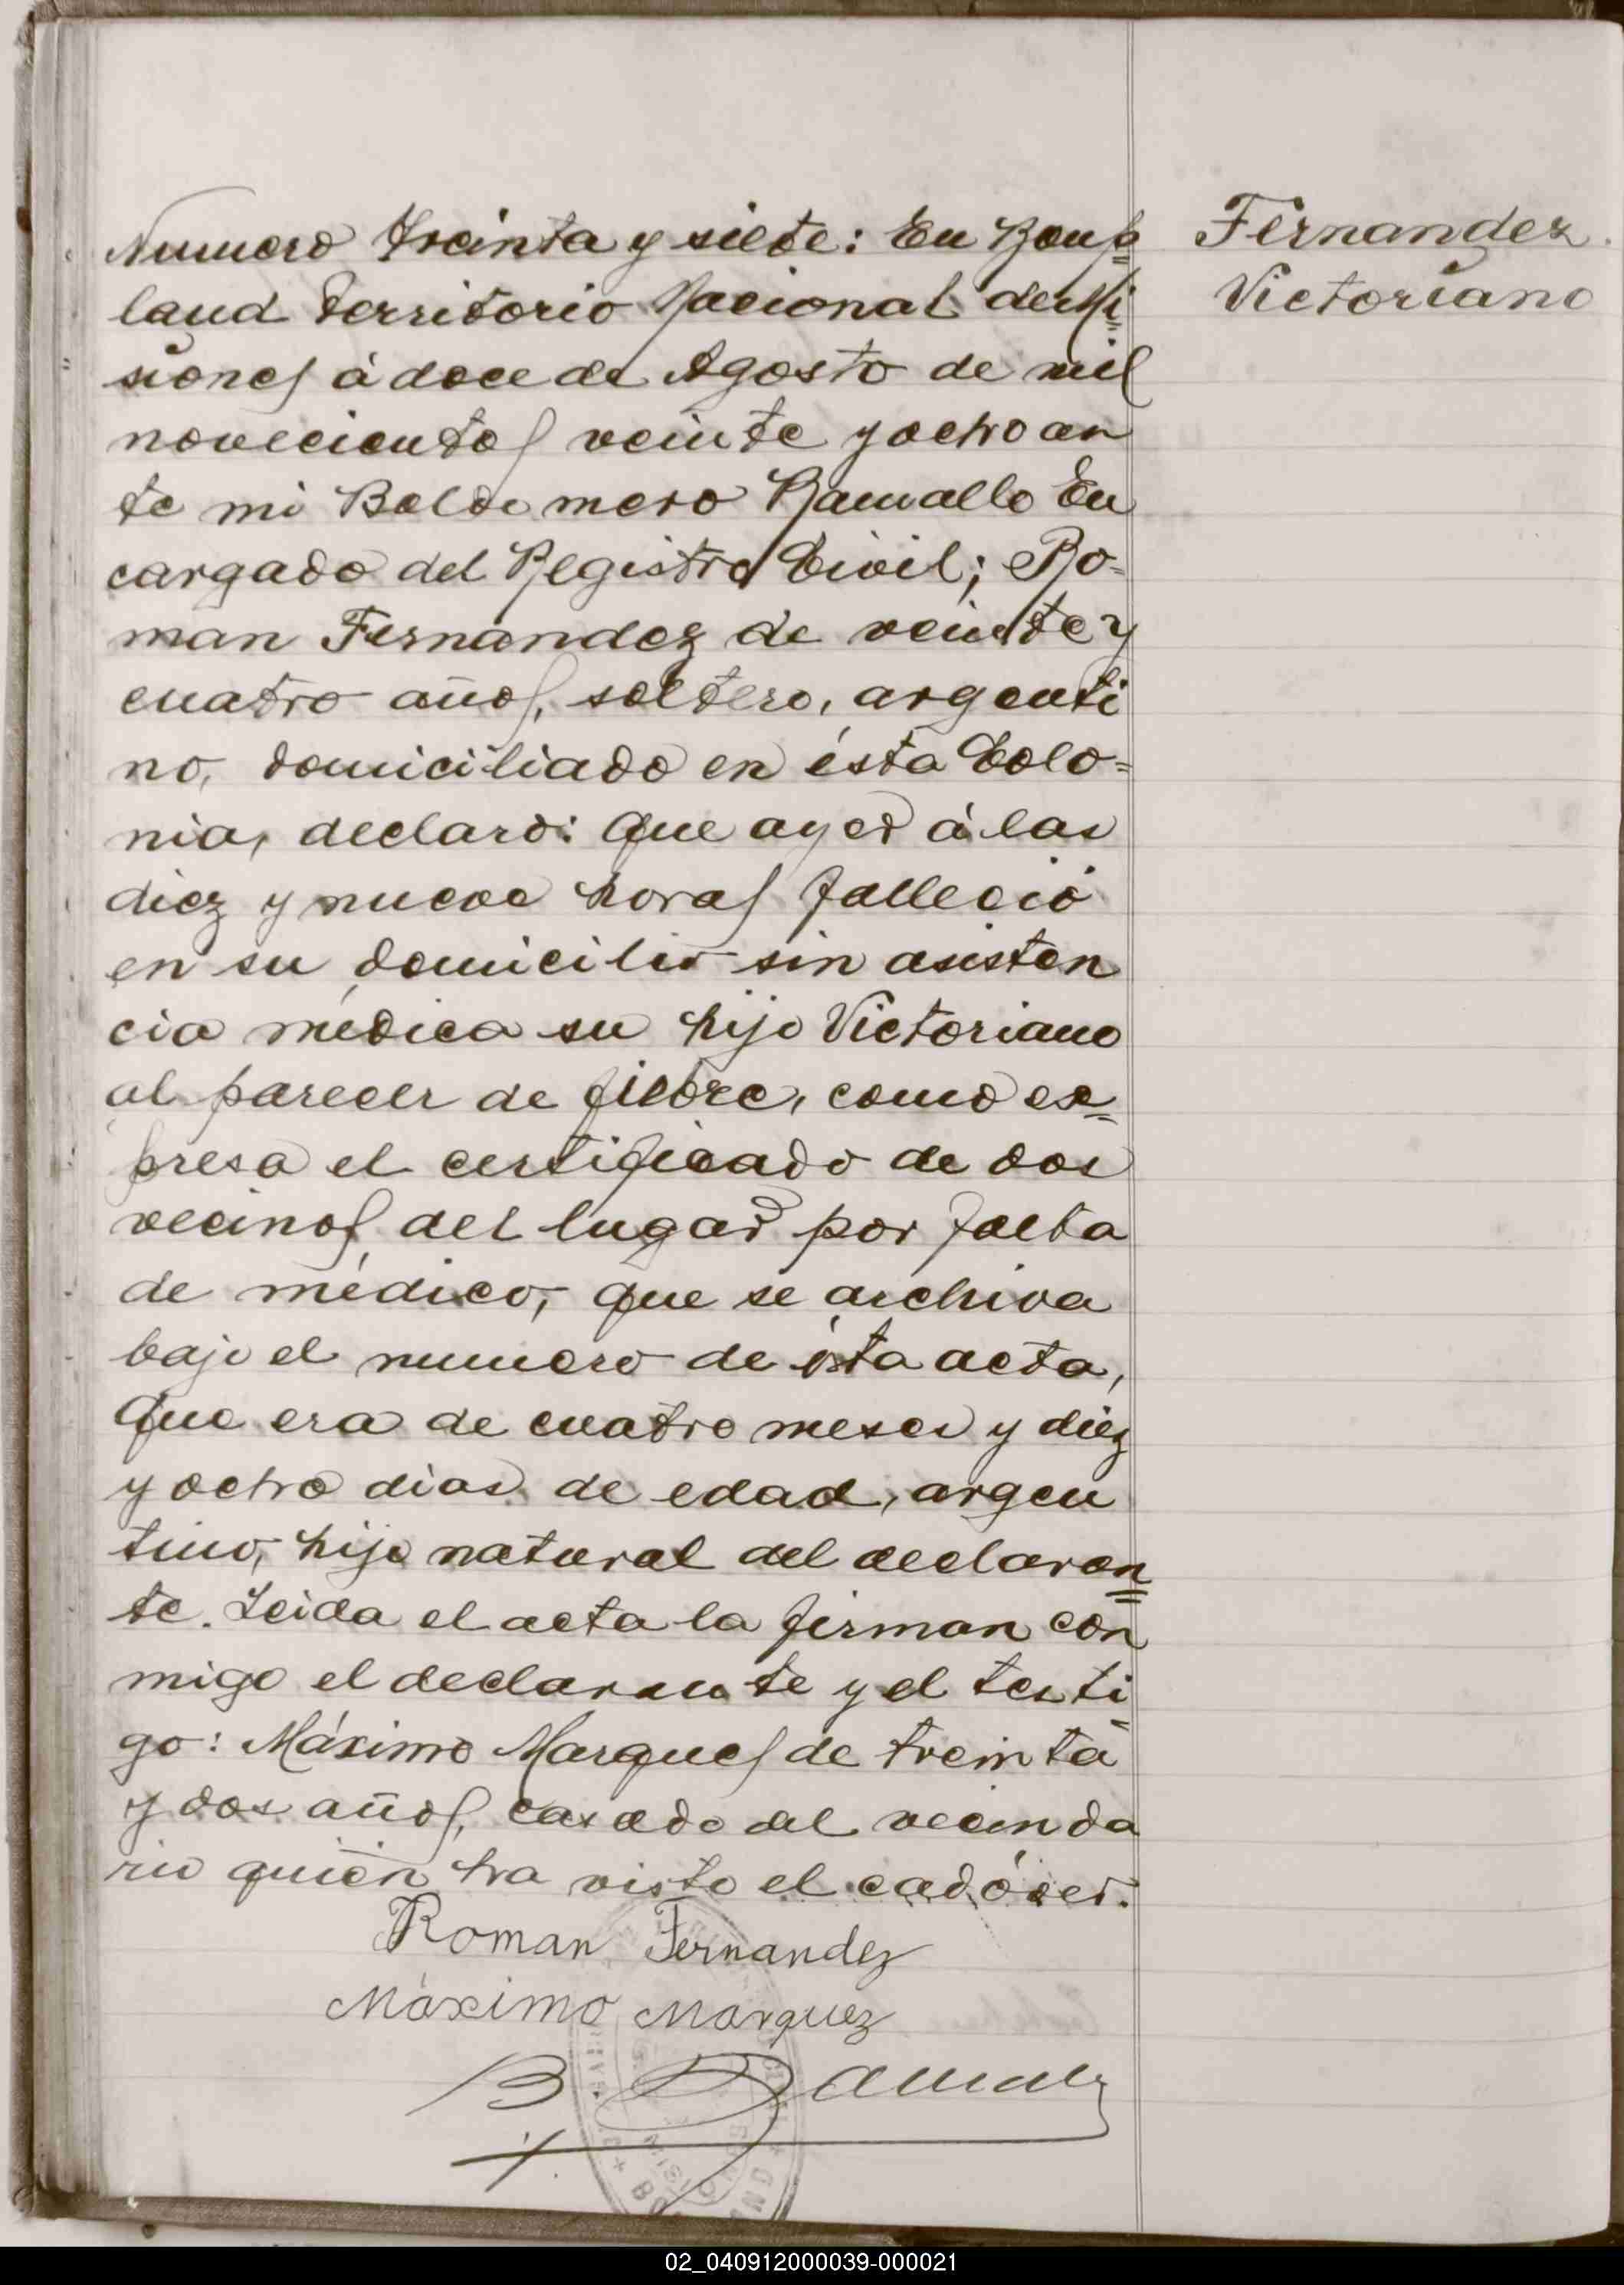 Numero Treinta y siete: En Bonp=
land Territorio Nacional de Mi=
siones á doce de Agosto de mil
novecientos veinte y ocho an
te mi Baldomero Ramallo En
cargado del Registro Civil; Ro-
man Fernandez de veinte y
cuatro años, soltero, argenti
no, domiciliado en ésta Colo=
nia, declaró: Que ayer á las
diez y nueve horas falleció
en su domicilio sin asisten
cia médica su hijo Victoriano
al parecer de fiebre, como ex=
presa el certificado de dos
vecinos del lugar por falta
de médico, que se archiva
bajo el numero de ésta acta,
que era de cuatro meses y diez
y ocho dias de edad, argen
tino, hijo natural del declaran=
te. Leida el acta la firman con
migo el declarante y el testi=
go: Máximo Marques de treinta
y dos años, casado del vecinda
rio quién ha visto el cadáver.
Roman Fernandez
Máximo Marquez
B Ramallo
Fernandez
Victoriano
02_040912000039-000021